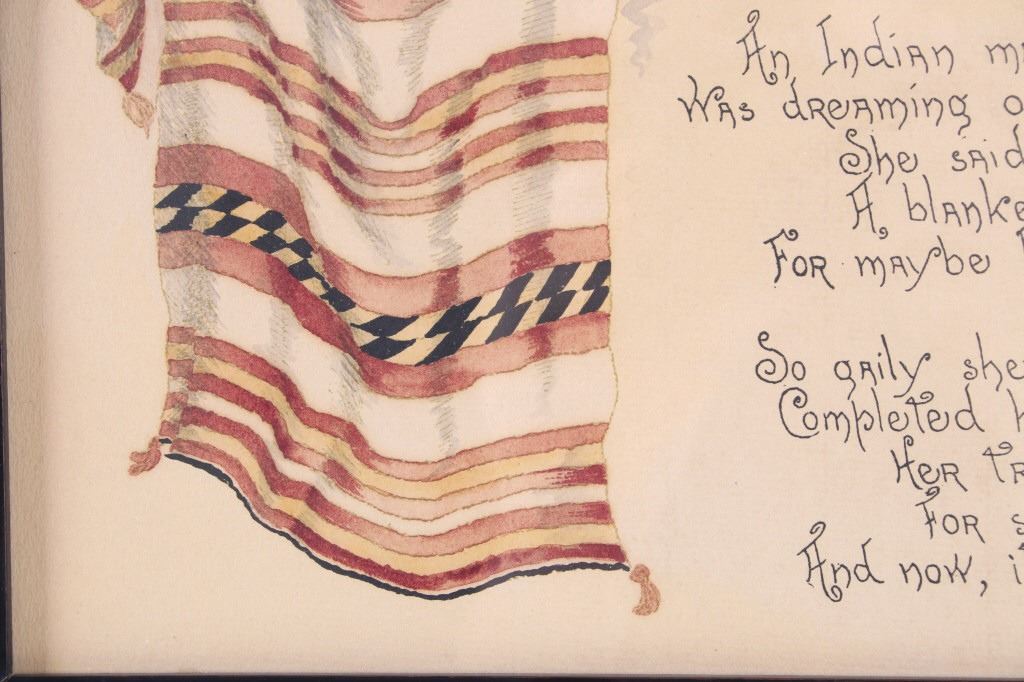 An Indian
Was dreaming
She said
A
For maybe
So gaily she
Completed
Her
For
And now,